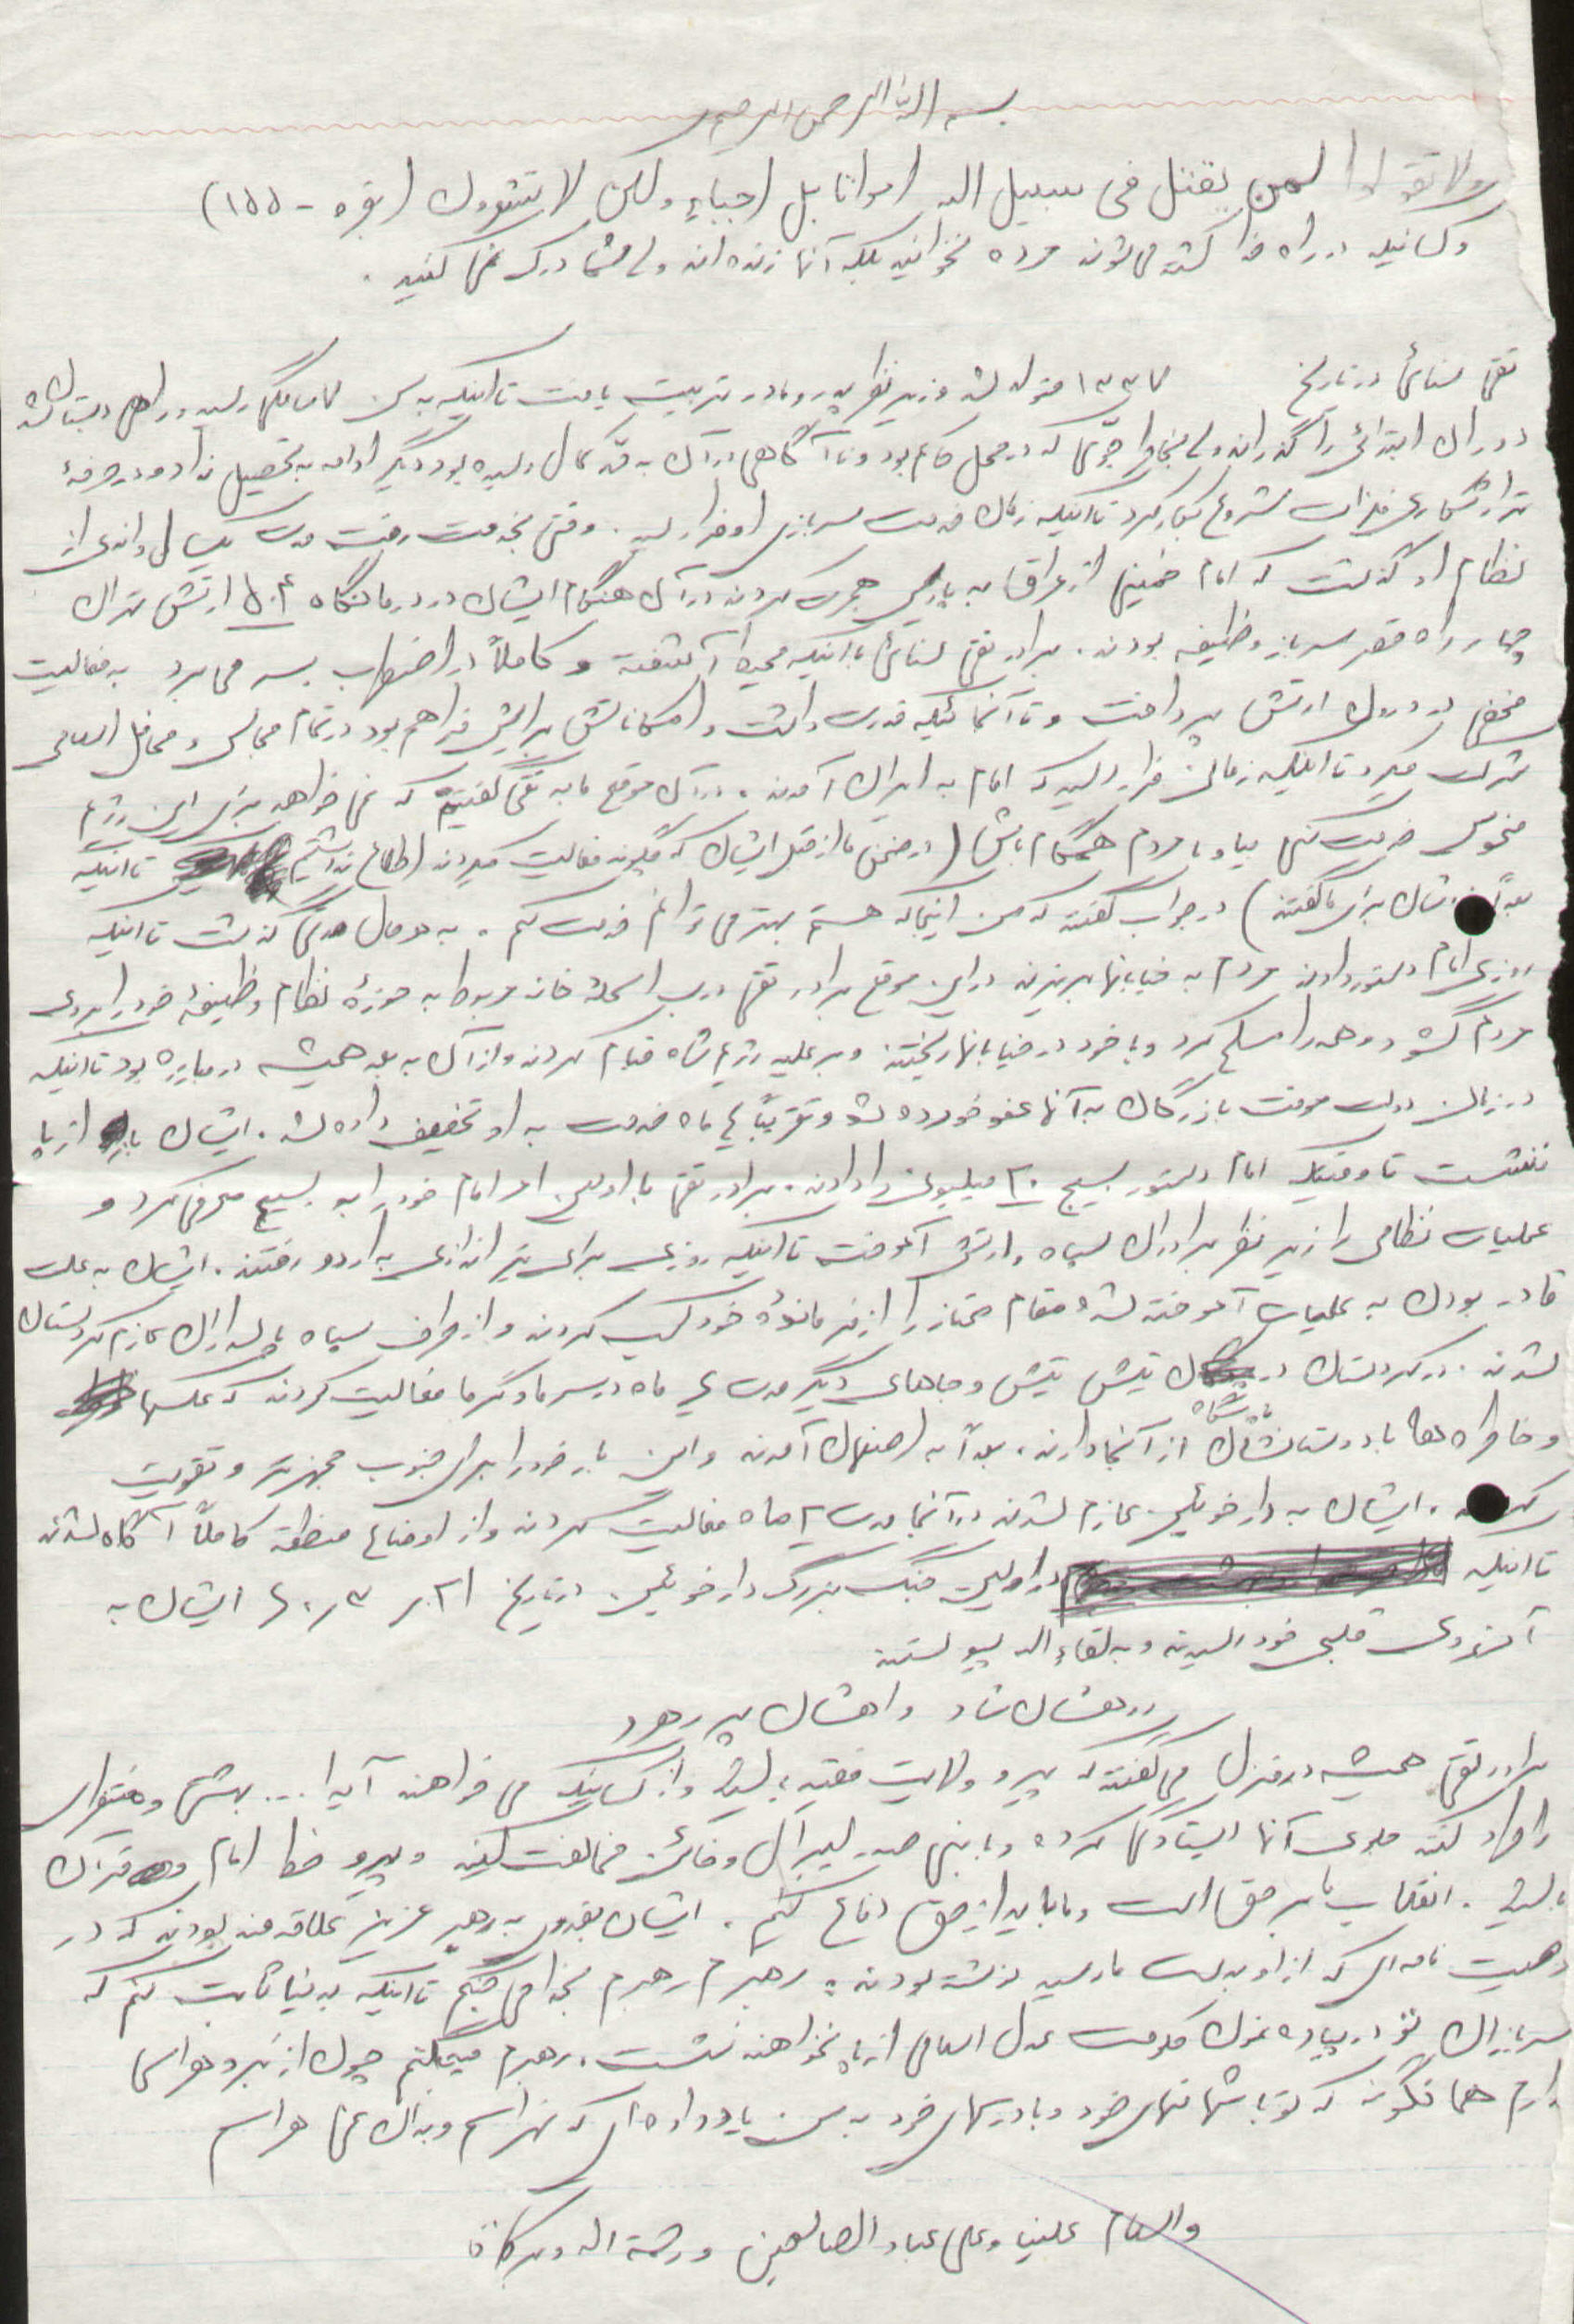 بسم الله الرحمن الرحیم
ولا تقولوا لمن یقتل فی سبیل الله امواتا بل احیاء ولکن لا تشعرون (بقره - ۱۵۵)
و کسانیکه در راه خدا کشته می شوند مرده نخوانید بلکه آنها زنده اند ولی شما درک نمی کنید .
تقی سنائی در تاریخ ۱۳۳۷ متولد شد و زیر نظر پدر و مادر تربیت یافت تا اینکه به سن ۷ سالگی رسید و راهی دبستان شد
دوران ابتدائی را گذراند ولی بنا بر جوّی که در محل حاکم بود و نا آگاهی در آن به حد کمال رسیده بود دیگر ادامه به تحصیل نداد و در حرفهٔ
تراشکاری فلزات شروع بکار کرد تا اینکه زمان خدمت سربازی او فرا رسید . وقتی بخدمت رفت مدت یکسال و اندی از
نظام او گذشت که امام خمینی از عراق به پاریس هجرت کردند در آن هنگام ایشان در درمانگاه ۵۰۴ ارتش تهران
چهار راه قصر سرباز وظیفه بودند . برادر تقی سنائی با اینکه محیط آشفته و کاملاً در اضطراب بسر می برد به فعالیت
مخفی در درون ارتش پرداخت و تا آنجائیکه قدرت داشت و امکاناتش برایش فراهم بود در تمام مجالس و محافل اسلامی
شرکت میکرد تا اینکه زمانی فرا رسید که امام به ایران آمدند . در آن موقع ما به تقی گفتیم که نمی خواهد برای این رژیم
منحوس خدمت کنی بیا و با مردم همگام باش ( در ضمن ما از قبل ایشان که چگونه فعالیت میکردند اطلاع نداشتیم تا اینکه
بعداً خودشان برای ما گفتند ) در جواب گفتند که من اینجا که هستم بهتر می توانم خدمت کنم . به هر حال مدتی گذشت تا اینکه
روزی امام دستور دادند مردم به خیابانها بریزند در این موقع برادر تقی درب اسلحه خانه مربوط به حوزهٔ نظام وظیفهٔ خود را بروی
مردم گشود و همه را مسلح کرد و با خود در خیابانها ریختند و بر علیه رژیم شاه قیام کردند و از آن به بعد همیشه در مبارزه بود تا اینکه
در زمان دولت موقت بازرگان به آنها عفو خورده شد و تقریباً ۶ ماه خدمت به او تخفیف داده شد . ایشان باز از پا
ننشست تا وقتیکه امام دستور بسیج ۲۰ میلیونی را دادند . برادر تقی با اولین امر امام خود را به بسیج معرفی کرد و
عملیات نظامی را زیر نظر برادران سپاه و ارتش آموخت تا اینکه روزی برای تیراندازی به اردو رفتند . ایشان به علت
قادر بودن به عملیات آموخته شده مقام ممتاز را از فرماندهٔ خود کسب کردند و از طرف سپاه پاسداران عازم کردستان
شدند . در کردستان در تیش تیش و جاهای دیگر مدت ۶ ماه در سرما و گرما فعالیت کردند که عکسها
و خاطره ها با دوستانشان از آنجا دارند . بعداً به اصفهان آمدند و این بار خود را برای جنوب مجهزتر و تقویت
کردند . ایشان به دارخوئین عازم شدند در آنجا مدت ۲ ماه فعالیت کردند و از اوضاع منطقه کاملاً آگاه شدند
تا اینکه در اولین جنگ بزرگ دارخوئین در تاریخ ۲۱ر۳ر۶۰ ایشان به
آرزوی قلبی خود رسیدند و به لقاء الله پیوستند
روحشان شاد و راهشان پر رهرو
برادر تقی همیشه در منزل می گفتند که پیرو ولایت فقیه باشید و از کسانیکه می خواهند آیه ا... بهشتی و منتظری
را طرد کنند جلوی آنها ایستادگی کرده و با بنی صدر لیبرال و خائن مخالفت کنید و پیرو خط امام و قرآن
باشید . انقلاب ما بر حق است و ما باید از حق دفاع کنیم . ایشان بقدری به رهبر عزیز علاقه مند بودند که در
وصیت نامه ای که از او بدست ما رسید نوشته بودند : رهبرم رهبرم بخدا می جنگم تا اینکه به دنیا ثابت کنم که
سربازان تو در پیاده نمودن حکومت عدل اسلامی از پا نخواهند نشست . رهبرم میجنگم چون از نبرد هراسی
ندارم همانگونه که تو با شهامتهای خود و با درسهای خود به من یاد داده ای که نهراسم و بدان نمی هراسم
والسلام علینا و علی عباد الصالحین و رحمة الله و برکاته